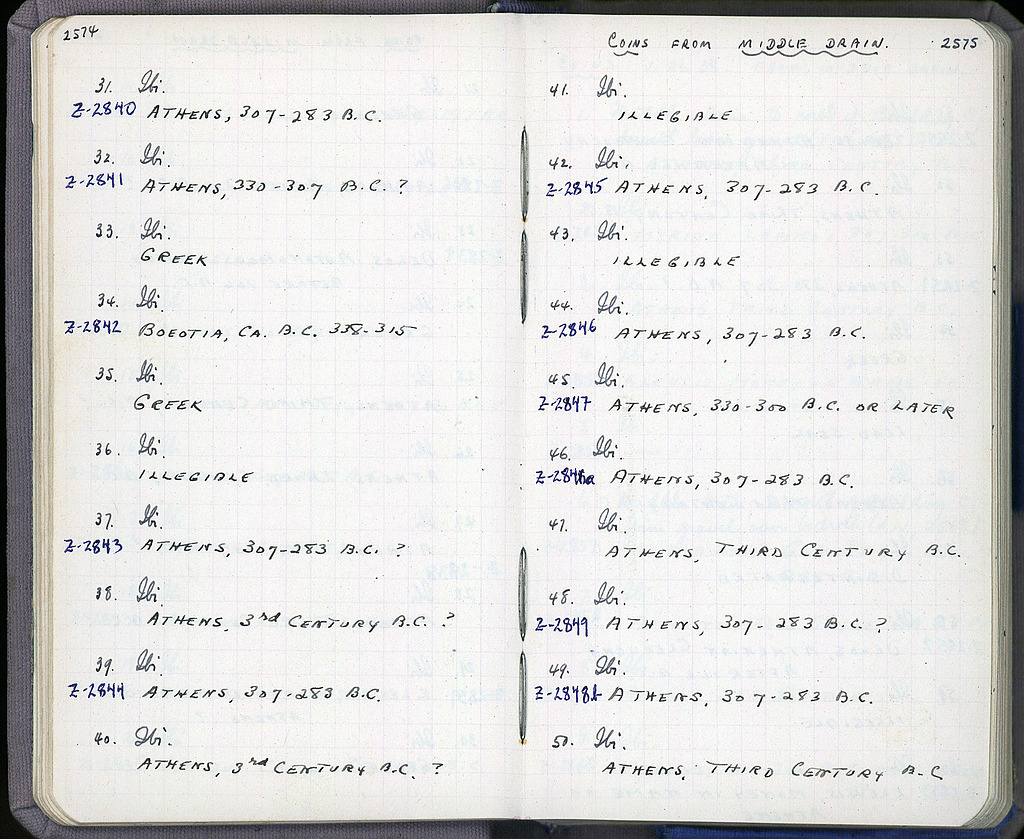 2574
31. Ibi.
Z-2840 ATHENS, 307-283 B.C.
32. Ibi.
Z-2841 ATHENS, 330-307 B.C. ?
33. Ibi.
GREEK
34. Ibi.
Z-2842 BOEOTIA, CA. B.C. 338-315
35. Ibi.
GREEK
36. Ibi.
ILLEGIBLE
37. Ibi.
Z-2843 ATHENS, 307-283 B.C. ?
38. Ibi.
ATHENS, 3rd CENTURY B.C. ?
39. Ibi.
Z-2844 ATHENS, 307-283 B.C.
40. Ibi.
ATHENS, 3rd CENTURY B.C. ?
COINS FROM MIDDLE DRAIN. 2575
41. Ibi.
ILLEGIBLE
42. Ibi.
Z-2845 ATHENS, 307-283 B.C.
43. Ibi.
ILLEGIBLE
44. Ibi.
Z-2846 ATHENS, 307-283 B.C.
45. Ibi.
Z-2847 ATHENS, 330-300 B.C. OR LATER
46. Ibi.
Z-2848a ATHENS, 307-283 B.C.
47. Ibi.
ATHENS, THIRD CENTURY B.C.
48. Ibi.
Z-2849 ATHENS, 307-283 B.C. ?
49. Ibi.
Z-2848b ATHENS, 307-283 B.C.
50. Ibi.
ATHENS, THIRD CENTURY B.C